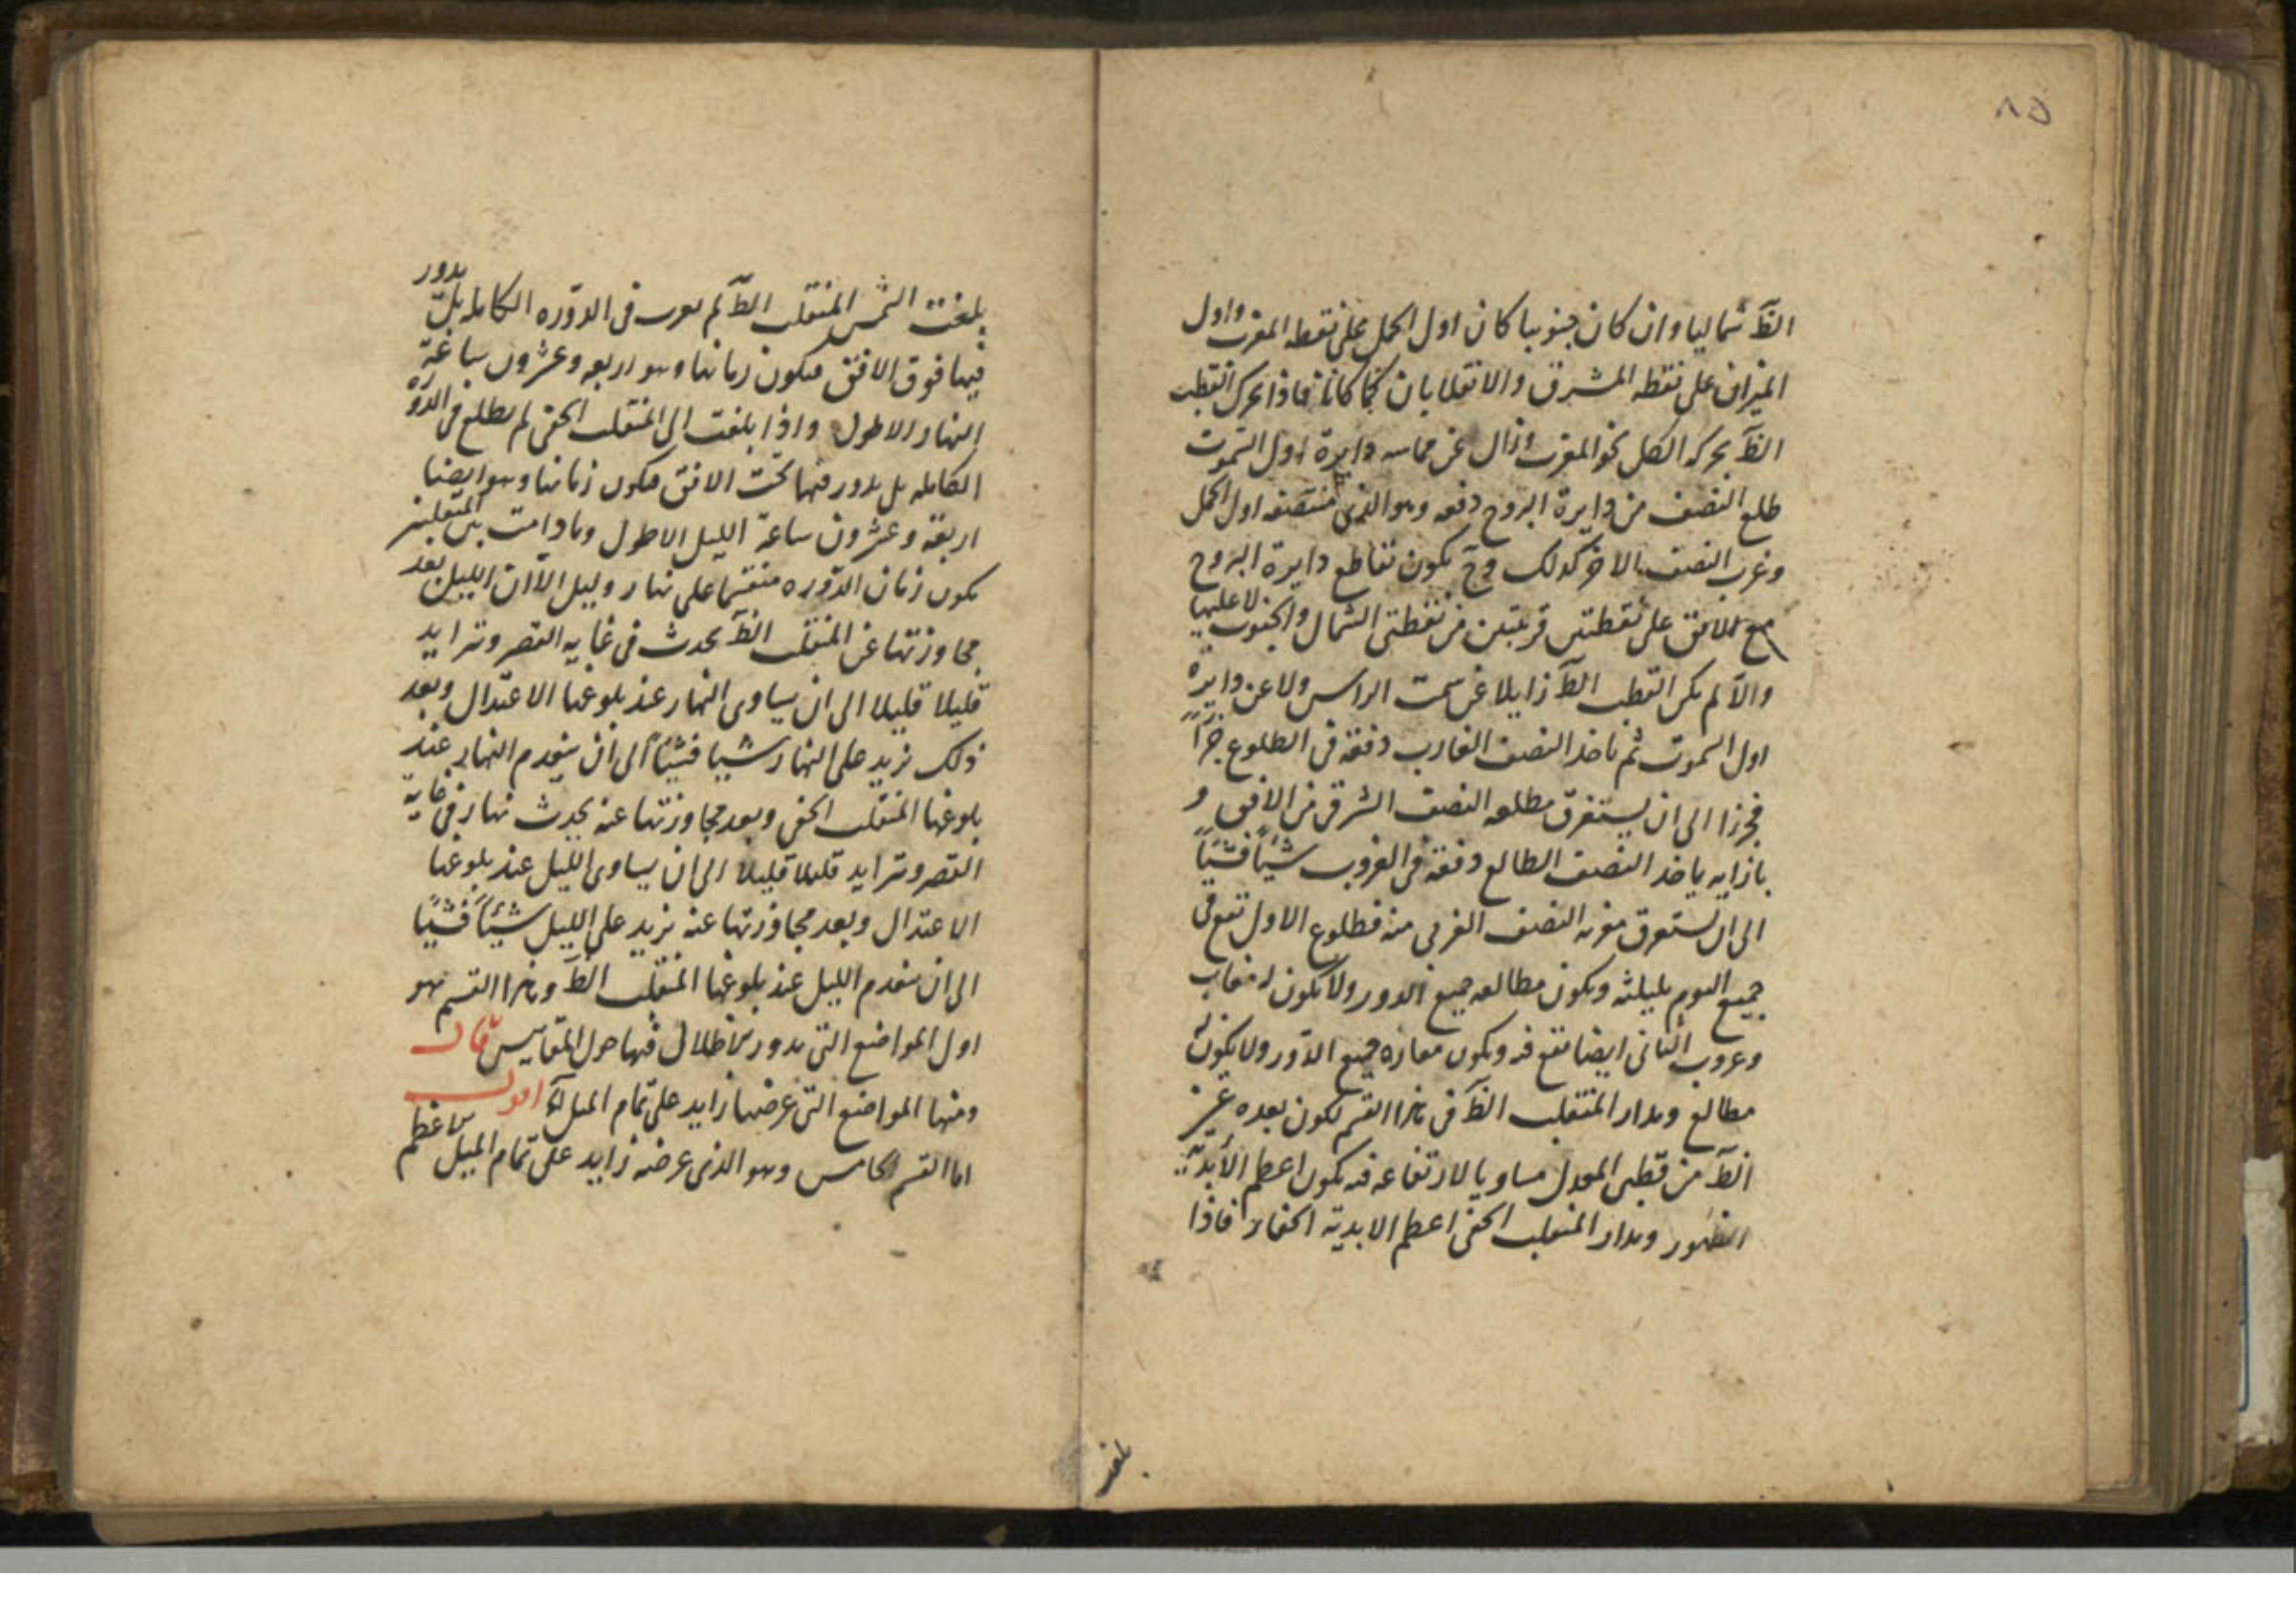 ٨٥
الظَ شماليا وان كان جنوبيا كان اول الحمل على نقطه المغرب واول
الميزان على نقطه المشرق والانقلابان كما كانا فاذا تحرك القطب
الظَ بحركه الكل نحو المغرب وزال عن مماسه دايرة اول السموت
طلع النصف من دايرة البروج دفعه وهو الذى منتصفه اول الحمل
وغرب النصف الاخر كذلك وح يكون تقاطع دايرة البروج
مع الافق على نقطتين قريبتين من نقطتى الشمال والجنوب لا عليهما
والا لم يكن القطب الظَ زايلا عن سمت الراس ولا عن دايرة
اول السموت ثم ياخذ النصف الغارب دفعة فى الطلوع جزاً
فجزا الى ان يستغرق مطلعه النصف الشرقى من الافق و
بازايه ياخذ النصف الطالع دفعة فى الغروب شيئاً فشيئاً
الى ان يستغرق مغربه النصف الغربى منه فطلوع الاول تقع فى
جميع اليوم بليلته ويكون مطالعه جميع الدور ولا يكون له مغارب
وغروب الثانى ايضا تقع فيه ويكون مغاربه جميع الدور ولا يكون له
مطالع ومدار المنقلب الظَ فى هذا القسم لكون بعده عن
الظَ من قطبى المعدل مساويا لارتفاعه فيه يكون اعظم الأبدية
الظهور ومدار المنقلب الخفى اعظم الابدية الخفاء فاذا
بلغت
بلغت الشمس المنقلب الظَ لم تغرب فى الدوره الكامله بل تدور
فيها فوق الافق فيكون زمانها وهو اربعه وعشرون ساعة
النهار الاطول واذا بلغت الى المنقلب الخفى لم تطلع فى الدوره
الكامله بل تدور فيها تحت الافق فيكون زمانها وهو ايضا
اربعة وعشرون ساعة الليل الاطول وما دامت بين المنقلبين
يكون زمان الدوره منقسما على نهار وليل الا ان الليل بعد
مجاوزتها عن المنقلب الظَ يحدث فى غايه القصر وتزايد
قليلا قليلا الى ان يساوى النهار عند بلوغها الاعتدال وبعد
ذلك يزيد على النهار شيا فشيئاً الى ان ينعدم النهار عند
بلوغها المنقلب الخفى وبعد مجاوزتها عنه يحدث نهار فى غاية
القصر وتزايد قليلا قليلا الى ان يساوى الليل عند بلوغها
الاعتدال وبعد مجاوزتها عنه يزيد على الليل شيئاً فشيئاً
الى ان ينعدم الليل عند بلوغها المنقلب الظَ وهذا القسم هو
اول المواضع التى يدور الاظلال فيها حول المقاييس قال
ومنها المواضع التى عرضها زايد على تمام الميل اقول
اما القسم الخامس وهو الذى عرضه زايد على تمام الميل الاعظم